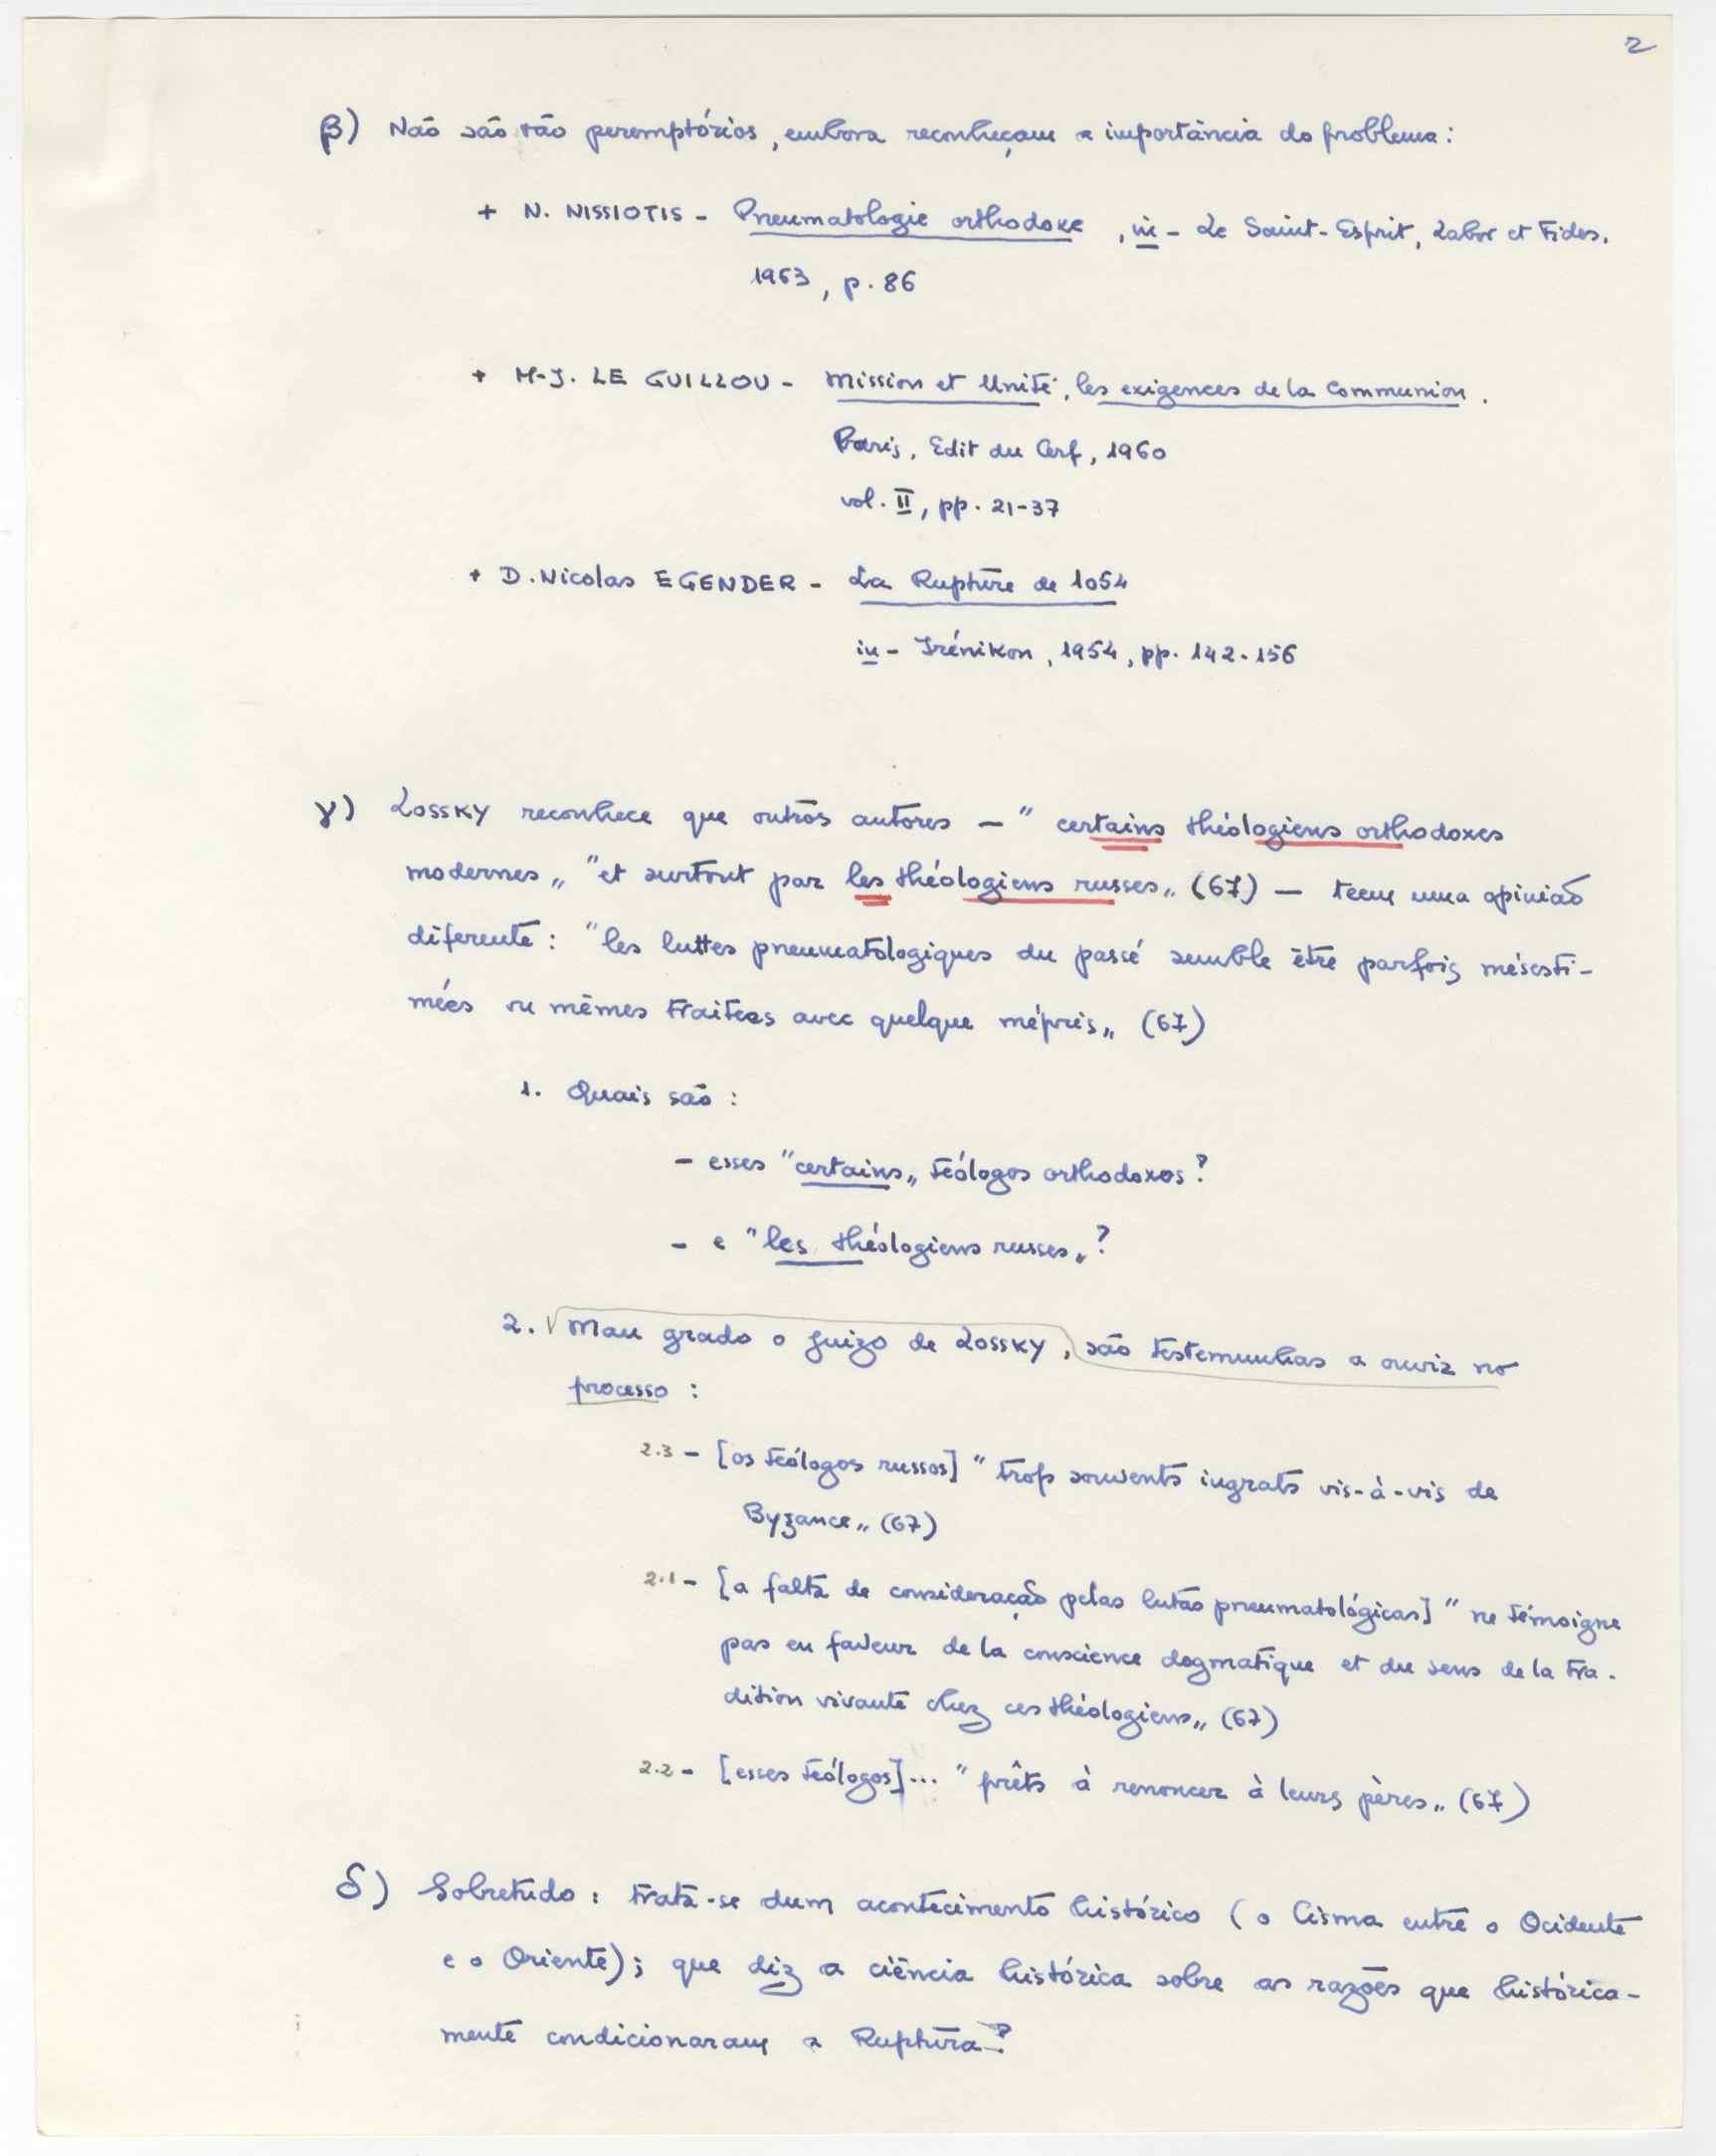 2
β) Não são tão peremptórios, embora reconheçam a importância do problema:
+ N. NISSIOTIS - Pneumatologie orthodoxe, in - Le Saint-Esprit, Labor et Fides,
1963, p. 86
+ M-J. LE GUILLOU - Mission et Unité, les exigences de la Communion.
Paris, Edit du Cerf, 1960
vol. II, pp. 21-37
+ D. Nicolas EGENDER - La Rupture de 1054
in - Irénikon, 1954, pp. 142-156
γ) LOSSKY reconhece que outros autores — "certains théologiens orthodoxes
modernes„ "et surtout par les théologiens russes„ (67) — teem uma opinião
diferente: "les luttes pneumatologiques du passé semble être parfois mésesti-
mées ou mêmes traitees avec quelque mépris„ (67)
1. Quais são:
- esses "certains„ teólogos orthodoxos?
- e "les théologiens russes„?
2. Mau grado o juizo de LOSSKY, são testemunhas a ouvir no
processo:
2.3 - [os teólogos russos] "trop souvents ingrats vis-à-vis de
Byzance„ (67)
2.1 - [a falta de consideração pelas lutas pneumatológicas] "ne témoigne
pas en faveur de la conscience dogmatique et du sens de la tra-
dition vivante chez ces théologiens„ (67)
2.2 - [esses teólogos]... "prêts à renoncer à leurs pères„ (67)
δ) Sobretudo: trata-se dum acontecimento histórico (o Cisma entre o Ocidente
e o Oriente); que diz a ciência histórica sobre as razões que histórica-
mente condicionaram a Ruptura?